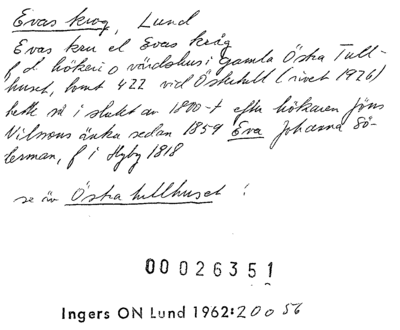 Evas krog, Lund
Evas kru el Evas kråg
f d hökeri o värdshus i gamla Östra Tull-
huset, tomt 422 vid Östertull (rivet 1926)
hette så i slutet av 1800-t efter hökaren Jöns
Vilssons änka sedan 1859 Eva Johanna Sö-
derman, f i Hyby 1818
se äv Östra tullhuset !
00 026351
Ingers ON Lund 1962:20056